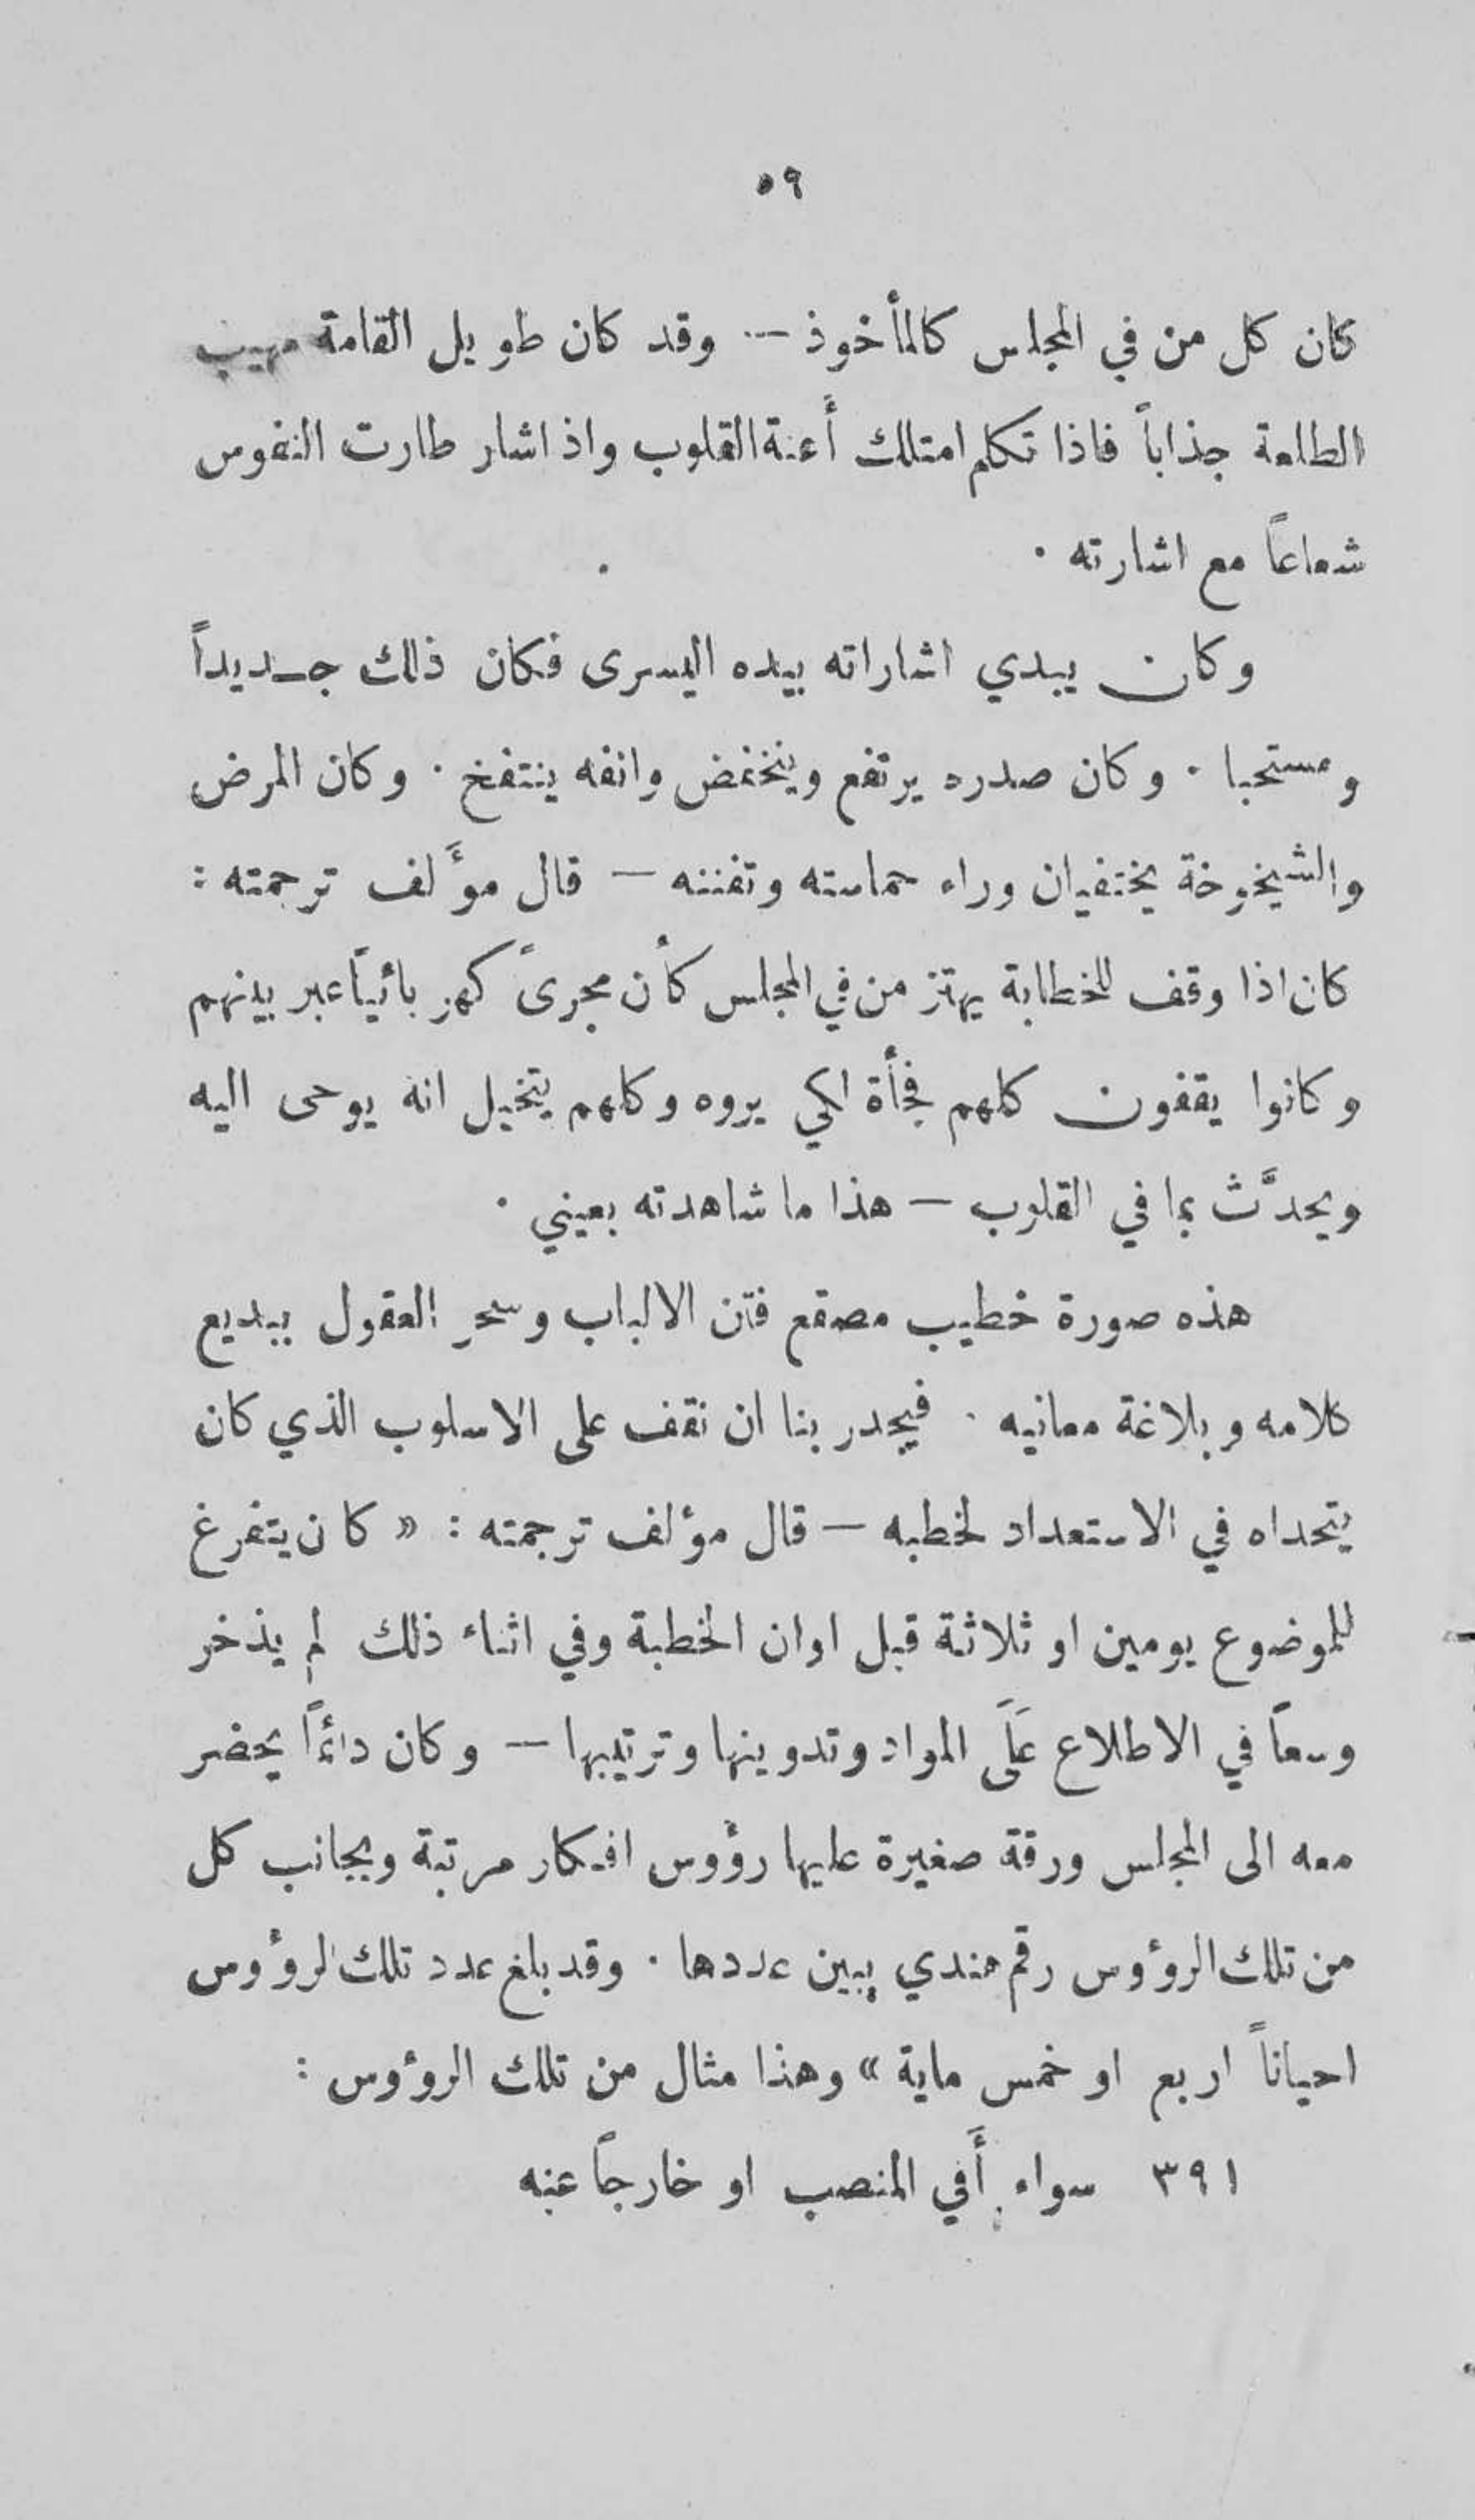 ٥٩
كان كل من في المجلس كالمأخوذ — وقد كان طويل القامة مهيب
الطلعة جذاباً فاذا تكلم امتلك أَعنة القلوب واذ اشار طارت النفوس
شعاعاً مع اشارته ٠
وكان يبدي اشاراته بيده اليسرى فكان ذلك جديداً
ومستحبا ٠ وكان صدره يرتفع وينخفض وانفه ينتفخ ٠ وكان المرض
والشيخوخة يختفيان وراء حماسته وتفننه — قال موَّلف ترجمته :
كان اذا وقف للخطابة يهتز من في المجلس كأن مجرىً كهربائيّاً عبر بينهم
وكانوا يقفون كلهم فجأة لكي يروه وكلهم يتخيل انه يوحى اليه
ويحدَّث بما في القلوب — هذا ما شاهدته بعيني ٠
هذه صورة خطيب مصقع فتن الالباب وسحر العقول ببديع
كلامه وبلاغة معانيه ٠ فيجدر بنا ان نقف على الاسلوب الذي كان
يتحداه في الاستعداد لخطبه — قال مؤلف ترجمته : « كان يتفرغ
للموضوع يومين او ثلاثة قبل اوان الخطبة وفي اثناء ذلك لم يذخر
وسعاً في الاطلاع عَلَى المواد وتدوينها وترتيبها — وكان دائماً يحضر
معه الى المجلس ورقة صغيرة عليها رؤوس افكار مرتبة وبجانب كل
من تلك الرؤوس رقم هندي يبين عددها ٠ وقد بلغ عدد تلك الرؤوس
احياناً اربع او خمس ماية » وهذا مثال من تلك الرؤوس :
٣٩١ سواء أَفي المنصب او خارجاً عنه